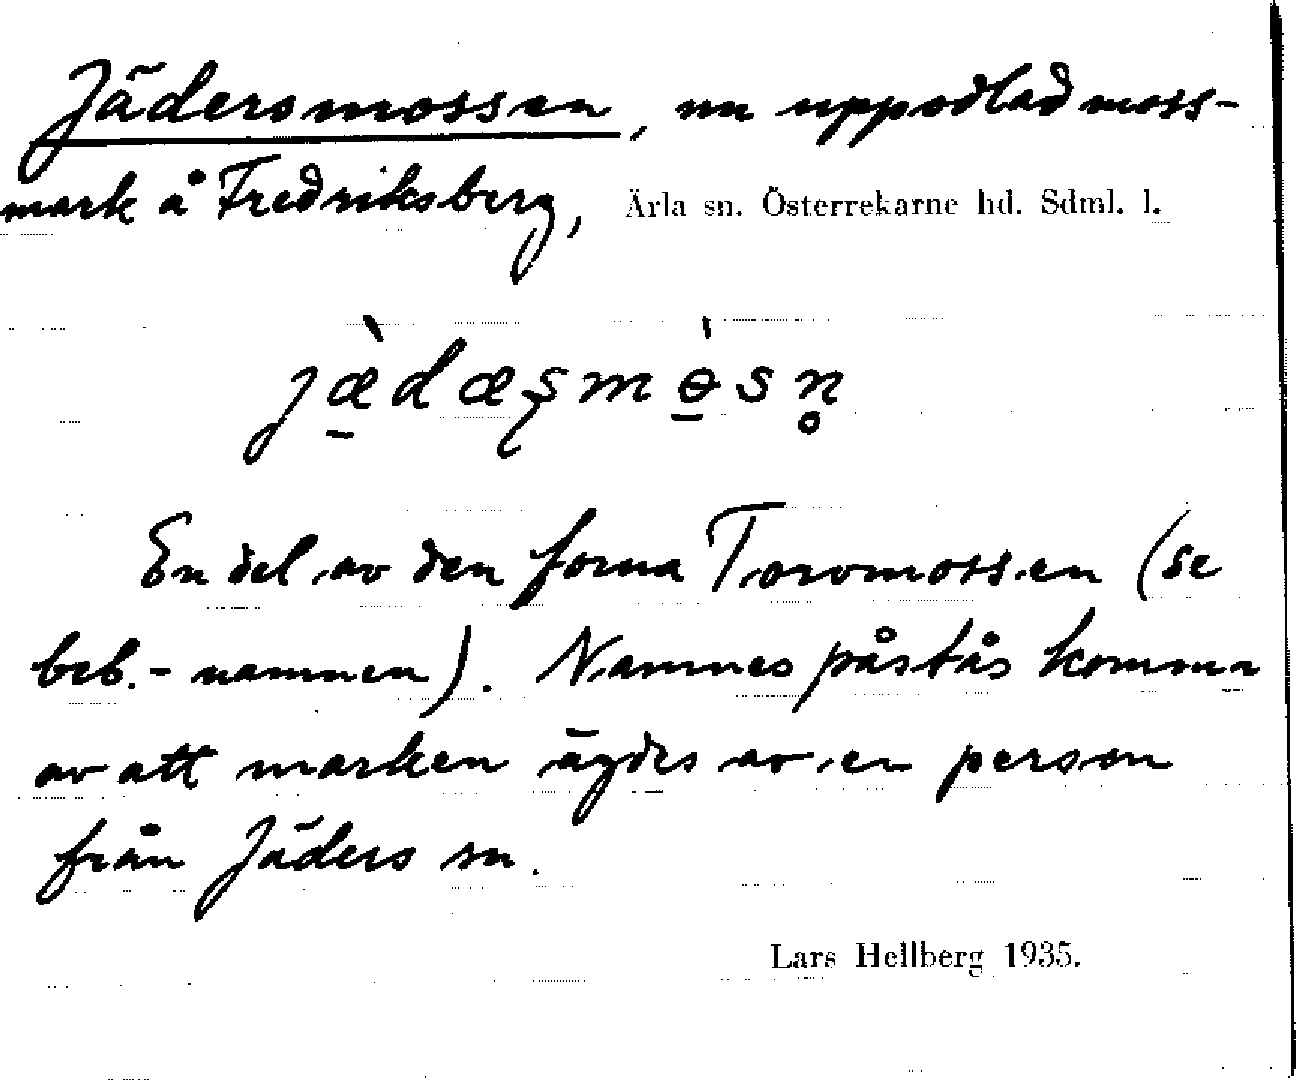 Jädersmossen, nu uppodlad moss-
mark å Fredriksberg, Ärla sn. Österrekarne hd. Sdml. l.
jæ̠̀dæʂmɵ̠̀sn̥
En del av den forna Torvmossen (se
beb.-namnen). Namnes påstås komma
av att marken ägdes av en person
från Jäders sn.
Lars Hellberg 1935.